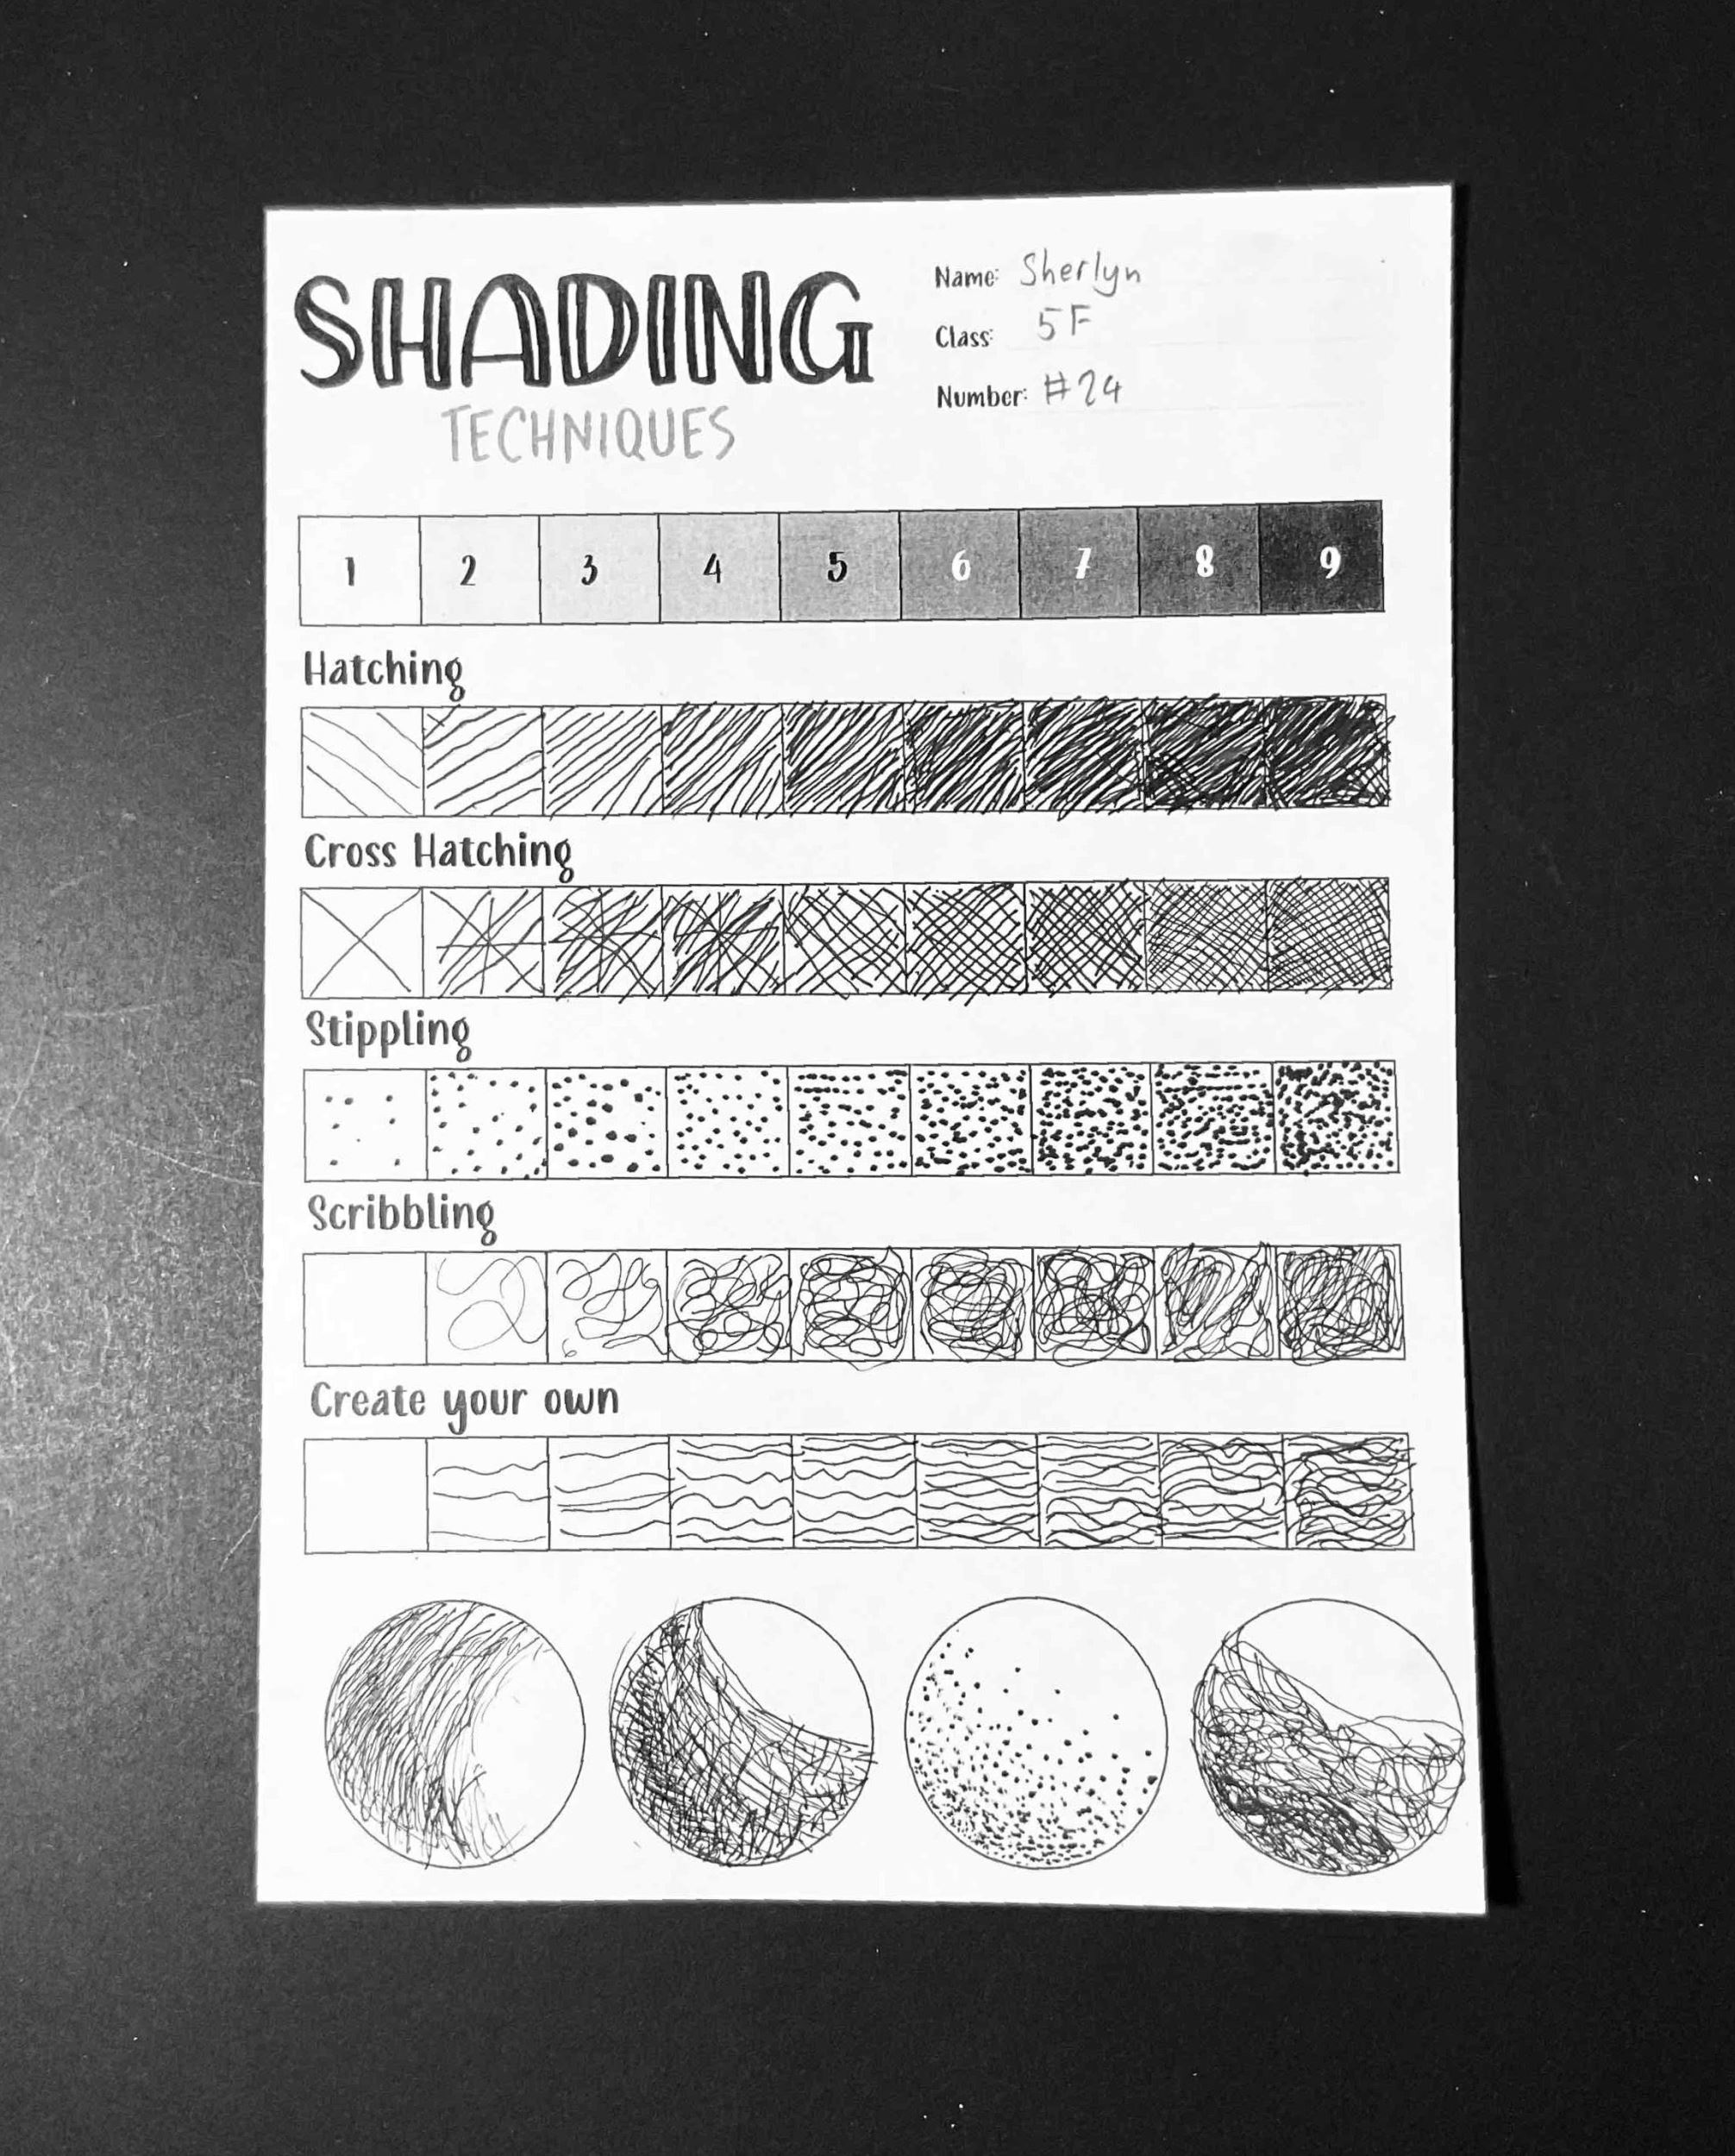 SHADING
TECHNIQUES
Name: Sherlyn
Class: 5F
Number: #24
1 2 3 4 5 6 7 8 9
Hatching
Cross Hatching
Stippling
Scribbling
Create your own